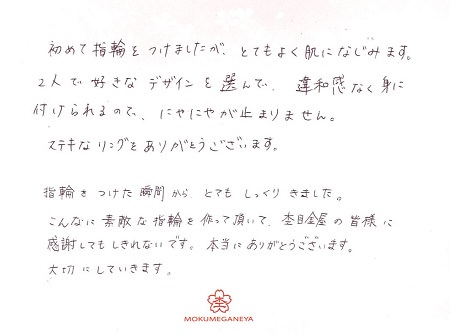 初めて指輪をつけましたが、とてもよく肌になじみます。
2人で好きなデザインを選んで、違和感なく身に
付けられるので、にやにやが止まりません。
ステキなリングをありがとうございます。
指輪をつけた瞬間から、とてもしっくりきました。
こんなに素敵な指輪を作って頂いて、杢目金屋の皆様に
感謝してもしきれないです。本当にありがとうございます。
大切にしていきます。
杢
MOKUMEGANEYA